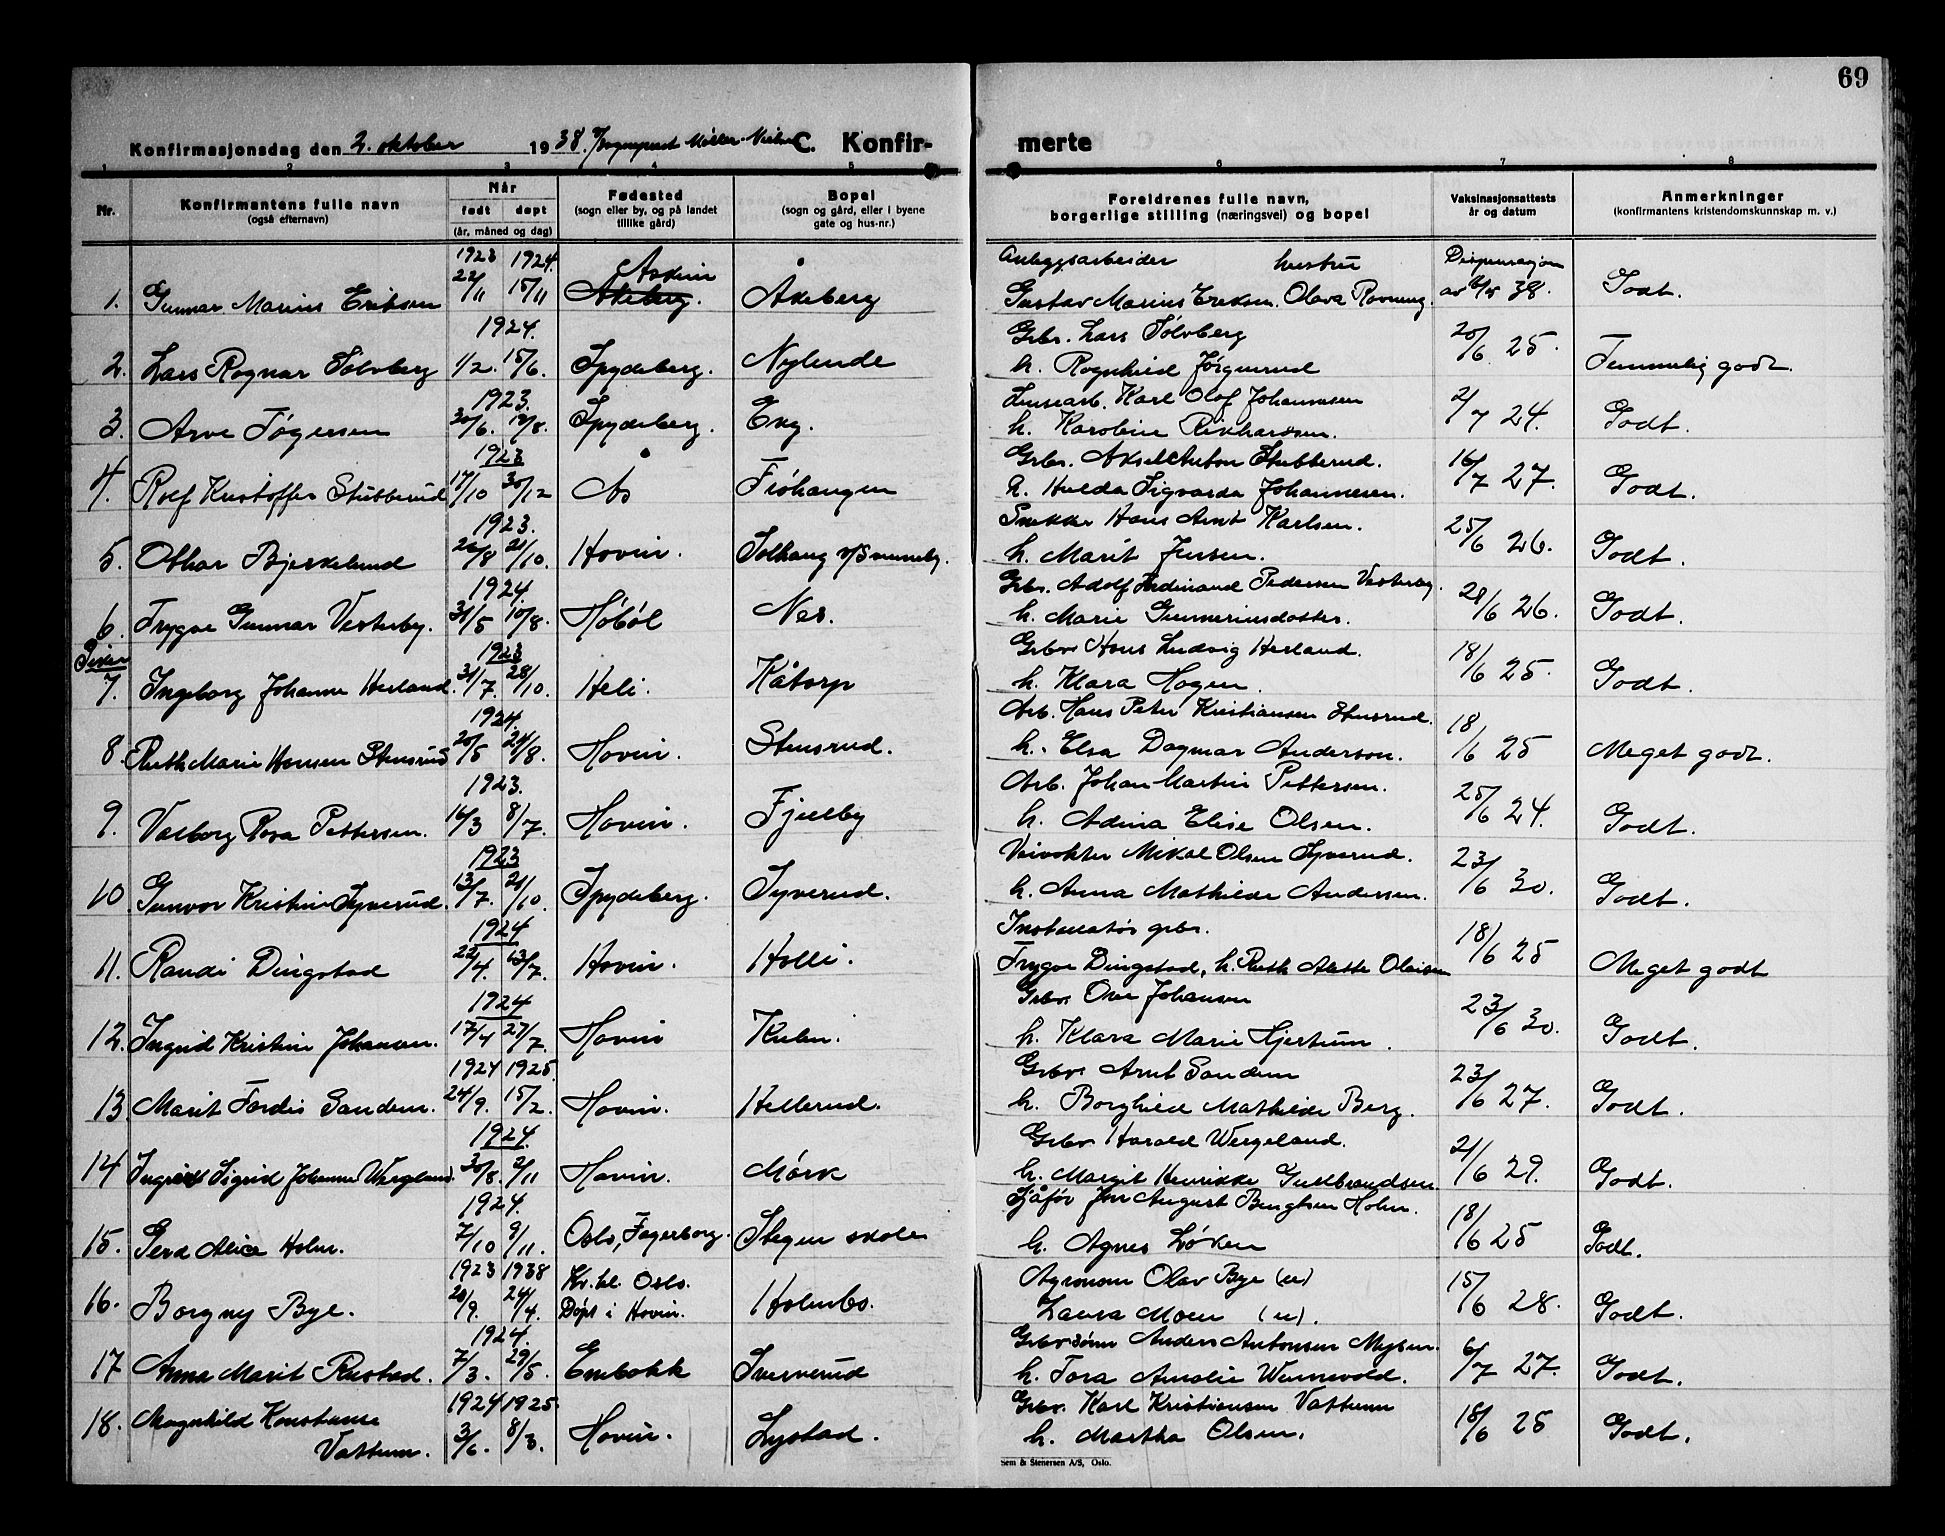 69
Konfirmasjonsdag den 2. oktober 1938. v/ Sogneprest C. Konfir-
merte
1 2 3 4 5 6 7 8
Nr. Konfirmantens fulle navn (også efternavn) Når født døpt (år, måned og dag) Fødested (sogn eller by, og på landet tillike gård) Bopel (sogn og gård, eller i byene gate og hus-nr.) Foreldrenes fulle navn, borgerlige stilling (næringsvei) og bopel Vaksinasjonsattests år og datum Anmerkninger (konfirmantens kristendomskunnskap m. v.)
1923 1924. Askim Anleggsarbeider hustru Dispensasjon
1. Gunnar Marius Eriksen 22/11 15/11 Åkeberg. Åkeberg Gustav Marius Eriksen. Olava Rovning av 38. Godt.
1924. Grbr. Lars Sølvberg
2. Lars Ragnar Sølvberg 1/2. 15/6. Spydeberg. Nylende h. Ragnhild Jørgensrud 20/6 25. Temmelig godt.
1923. Karl Olof Johannesen
3. Arve Tøgersen 30/6. 12/8. Spydeberg. Eng. h. Karoline Rikhardsen. 2/7 24. Godt.
1923 Grbr. Aksel Anton Stubberud.
4. Rolf Kristoffer Stubberud 17/10 30/12 Ås Fiohaugen h. Hulda Sigvarda Johannesen. 16/7 27. Godt.
1923. Snekker Hans Arnt Karlsen.
5. Othar Bjerkelund 26/8 21/10. Hovin. Solhaug v/Svenneby. h. Marit Jensen. 25/6 26. Godt.
1924. Grbr. Adolf Ferdinand Pedersen Vesterby
6. Trygve Gunnar Vesterby. 31/5 10/8. Høbøl Nes. h. Marie Gunneriusdotter. 28/6 26. Godt.
Piker 1923 Grbr. Hans Ludvig Herland.
7. Ingeborg Johanne Herland. 31/7. 28/10. Heli. Kåtorp h. Klara Hagen. 18/6 25. Godt.
1924. Arb. Hans Peter Kristiansen Stensrud.
8. Ruth Marie Hansen Stensrud 20/5 24/8. Hovin. Stensrud. h. Elsa Dagmar Anderson. 18/6 25 Meget godt.
1923. Arb. Johan Martin Pettersen.
9. Valborg Rosa Pettersen. 16/3 8/7. Hovin. Fjellby h. Adina Elise Olsen. 25/6 24. Godt.
1923 Veivokter Mikal Olsen Syverud.
10 Gunvor Kristine Syverud. 13/7. 21/10. Spydeberg. Syverud. h. Anna Mathilde Andersen. 23/6 30. Godt.
1924 Installatør grbr.
11. Randi Dingstad 22/4. 13/7. Hovin. Holli. Trygve Dingstad, h. Ruth Alette Olaisen 18/6 25 Meget godt
1924 Grbr. Ove Johansen
12. Ingrid Kristine Johansen. 17/4 27/7. Hovin Kulin. h. Klara Marie Hjertum. 23/6 30. Godt.
1924 1925. Grbr. Arnt Sandem
13 Marit Tordis Sandem. 24/9. 15/2. Hovin. Hellerud. h. Borghild Mathilde Berg. 23/6 27. Godt.
1924. Grbr Harald Wergeland.
14 Sigrid Johanne Wergeland 30/8. 2/11 Hovin. Mørk h. Margit Henrikke Gulbrandsen. 21/6 29. Godt.
1924. Sjåfør August Bengtsen Holm.
15. Gerd Alice Holm. 7/10 9/11. Oslo, Fagerborg. Stegen skole h. Agnes Løken 18/6 25 Godt.
1923 1938 Kv. kl. Oslo. Agronom Olav Bye (u)
16. Borgny Bye. 20/9. 24/4. Døpt i Hovin. Holmbo. Laura Moen (u). 15/6 28. Godt.
1924. Grbr.sønn Anders Antonsen Mysen.
17 Anna Marit Rustad. 7/3. 29/5. Enebakk Sververud h. Tora Amalie Wennevold. 6/7 27. Godt.
1924 1925. Grbr. Karl Kristiansen Vattum
18. Magnhild Konstanse Vattum. 3/6. 8/3. Hovin. Lystad. h. Martha Olsen. 18/6 25 Godt.
Sem & Stenersen A/S, Oslo.